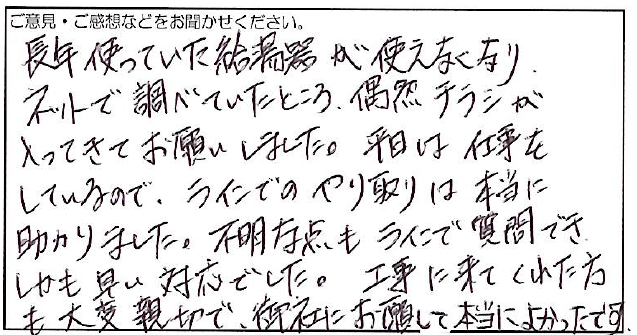 ご意見・ご感想などをお聞かせください。
長年使っていた給湯器が使えなくなり、
ネットで調べていたところ、偶然チラシが
入ってきてお願いしました。平日は仕事を
しているので、ラインでのやり取りは本当に
助かりました。不明な点もラインで質問でき
しかも早い対応でした。工事に来てくれた方
も大変親切で、御社にお願して本当によかったです